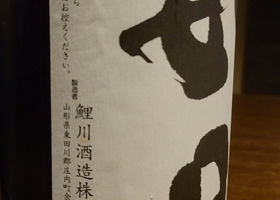 ら
お控えください。
製造者
鯉川酒造株
山形県東田川郡庄内町余